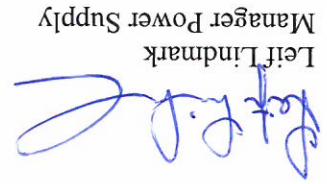 Leif Lindmark
Manager Power Supply